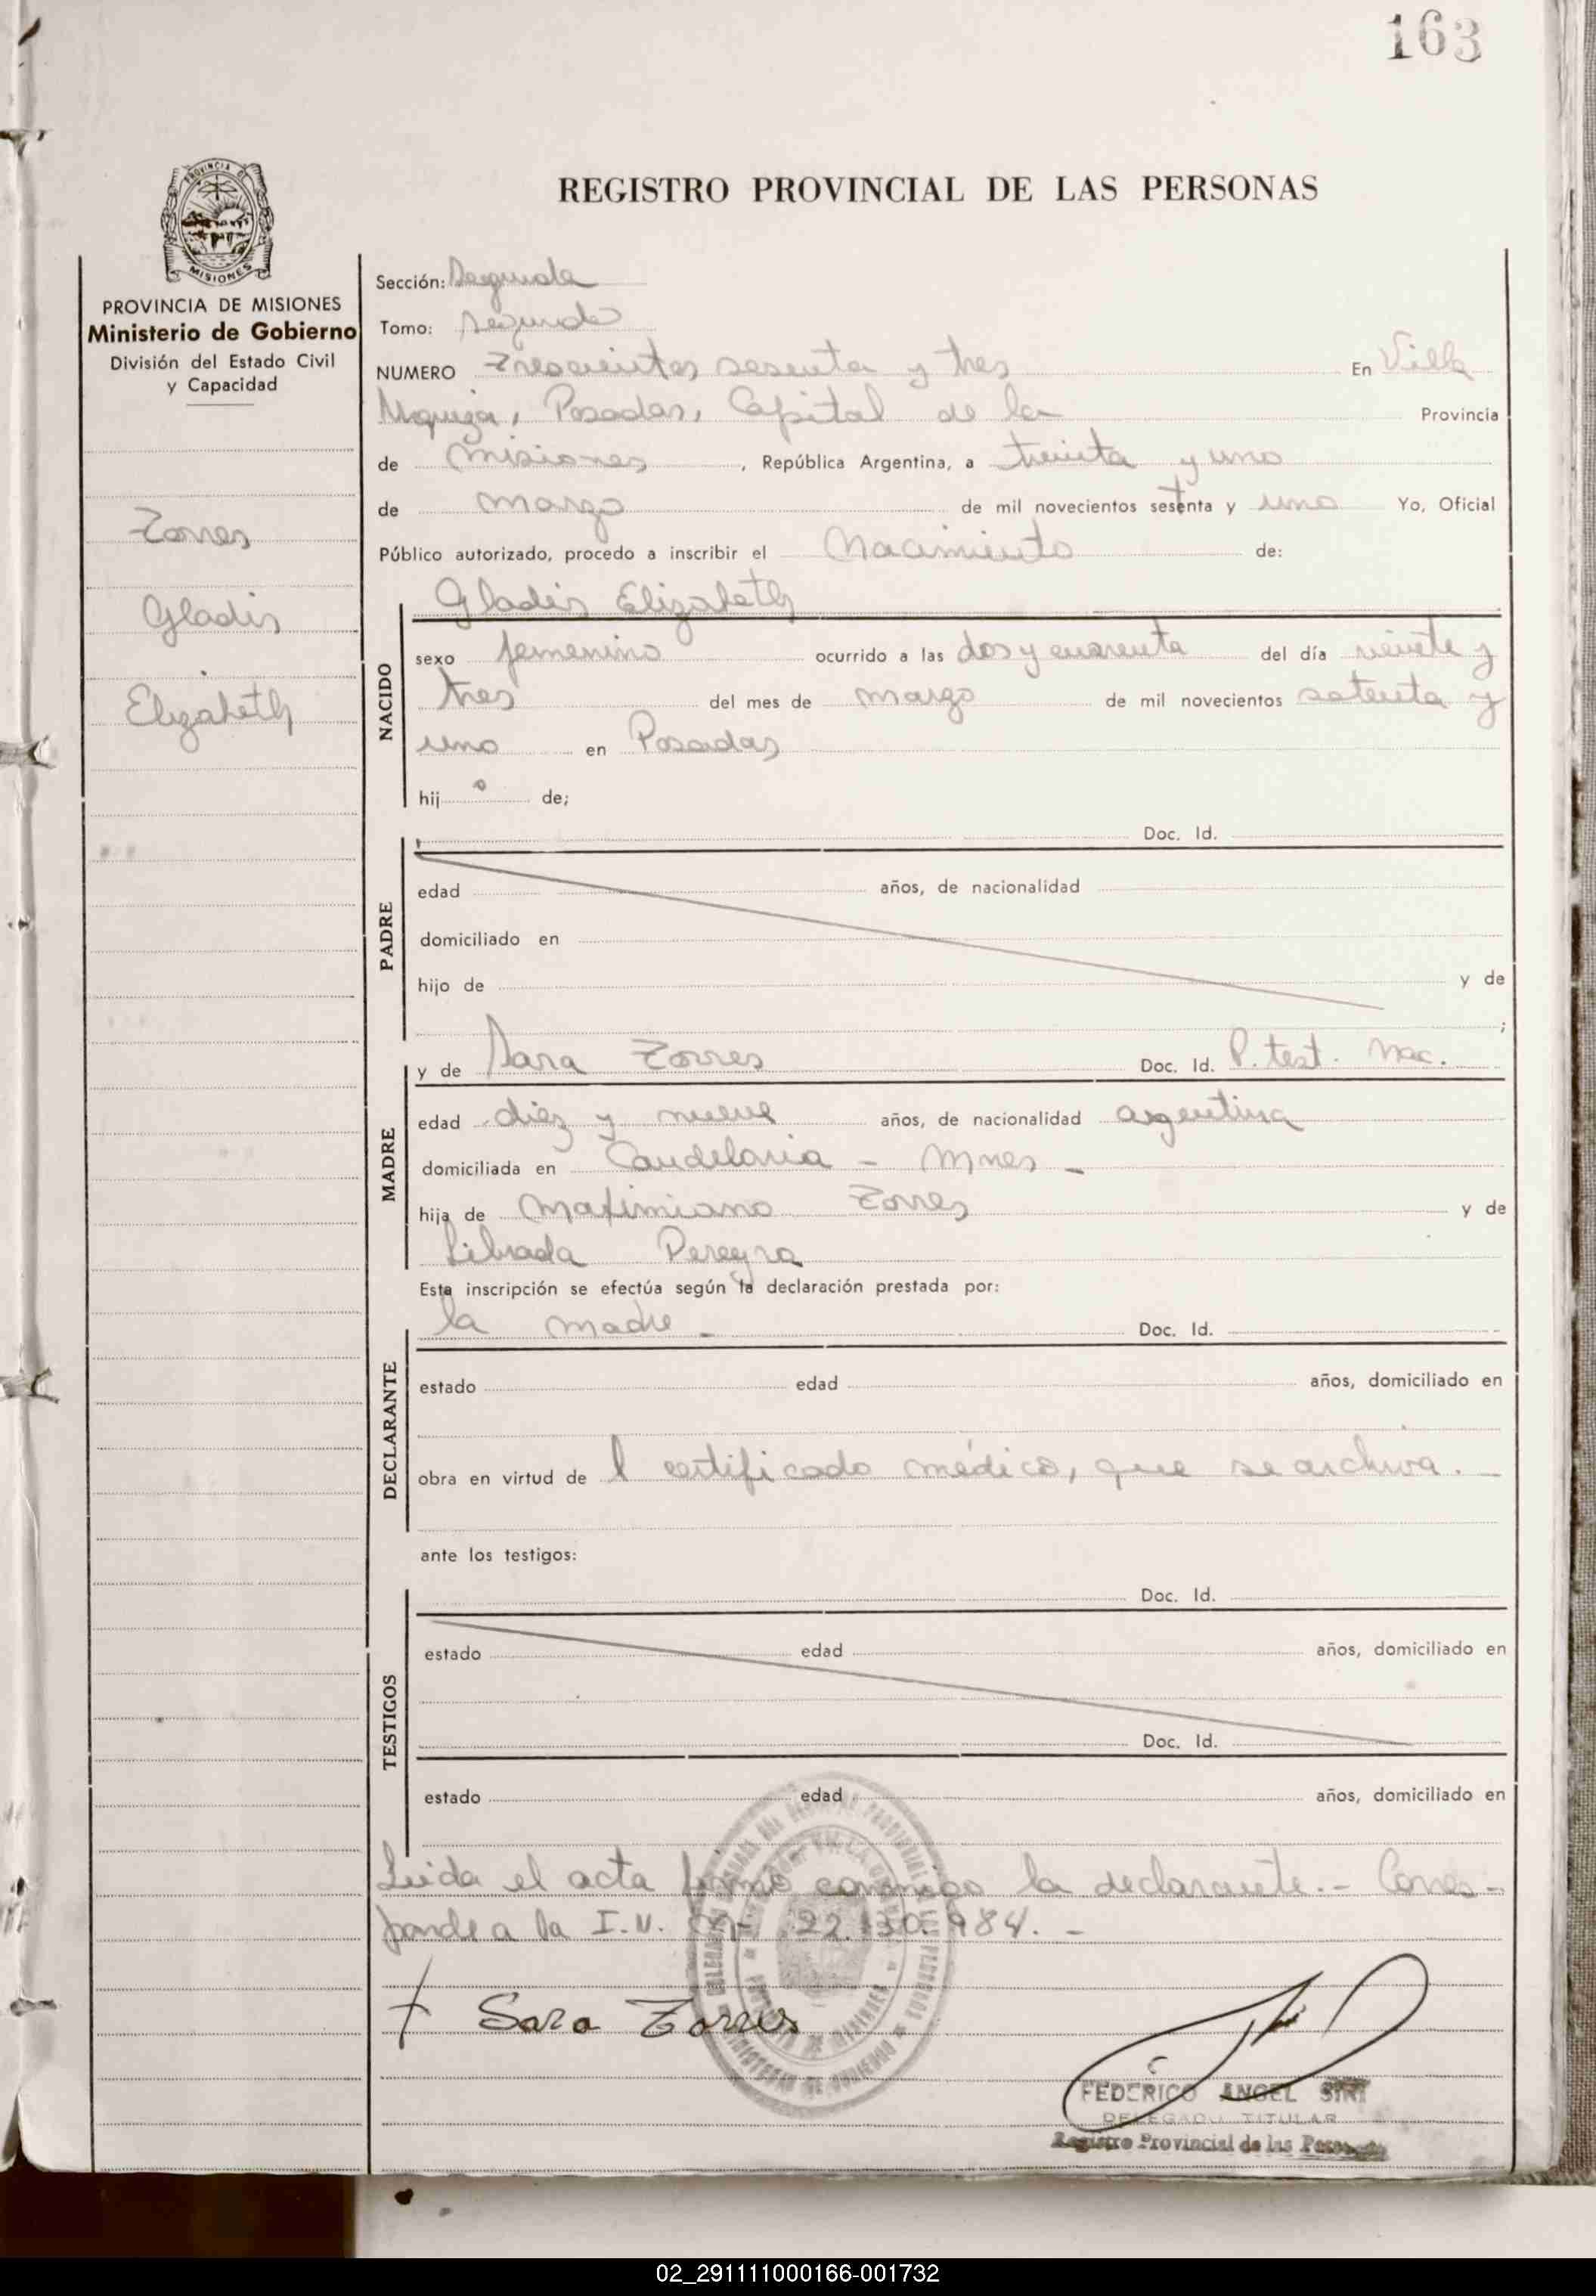 163
PROVINCIA DE MISIONES
REGISTRO PROVINCIAL DE LAS PERSONAS
PROVINCIA DE MISIONES
Ministerio de Gobierno
División del Estado Civil
y Capacidad
Torres
Gladis
Elizabeth
Sección: Segunda
Tomo: segundo
NUMERO Trescientos sesenta y tres En Villa
Urquiza, Posadas, Capital de la Provincia
de Misiones, República Argentina, a treinta y uno
de marzo de mil novecientos setenta y uno Yo, Oficial
Público autorizado, procedo a inscribir el Nacimiento de:
NACIDO
Gladis Elizabeth
sexo femenino ocurrido a las dos y cuarenta del día veinte y
tres del mes de marzo de mil novecientos setenta y
uno en Posadas
hij de;
PADRE
Doc. Id.
edad años, de nacionalidad
domiciliado en
hijo de y de
;
MADRE
y de Sara Torres Doc. Id. P. test. Nac.
edad diez y nueve años, de nacionalidad argentina
domiciliada en Candelaria - Mnes -
hija de Maximiano Torres y de
Librada Pereyra
Esta inscripción se efectúa según la declaración prestada por:
DECLARANTE
la madre - Doc. Id.
estado edad años, domiciliado en
obra en virtud de l certificado médico, que se archiva. -
ante los testigos:
TESTIGOS
Doc. Id.
estado edad años, domiciliado en
Doc. Id.
estado edad años, domiciliado en
Leida el acta firmó conmigo la declarante. - Corres-
ponde a la I.N. 22.130.984. -
Sara Torres
FEDERICO ANGEL
DELEGADO TITULAR
Registro Provincial de las Personas
02_291111000166-001732